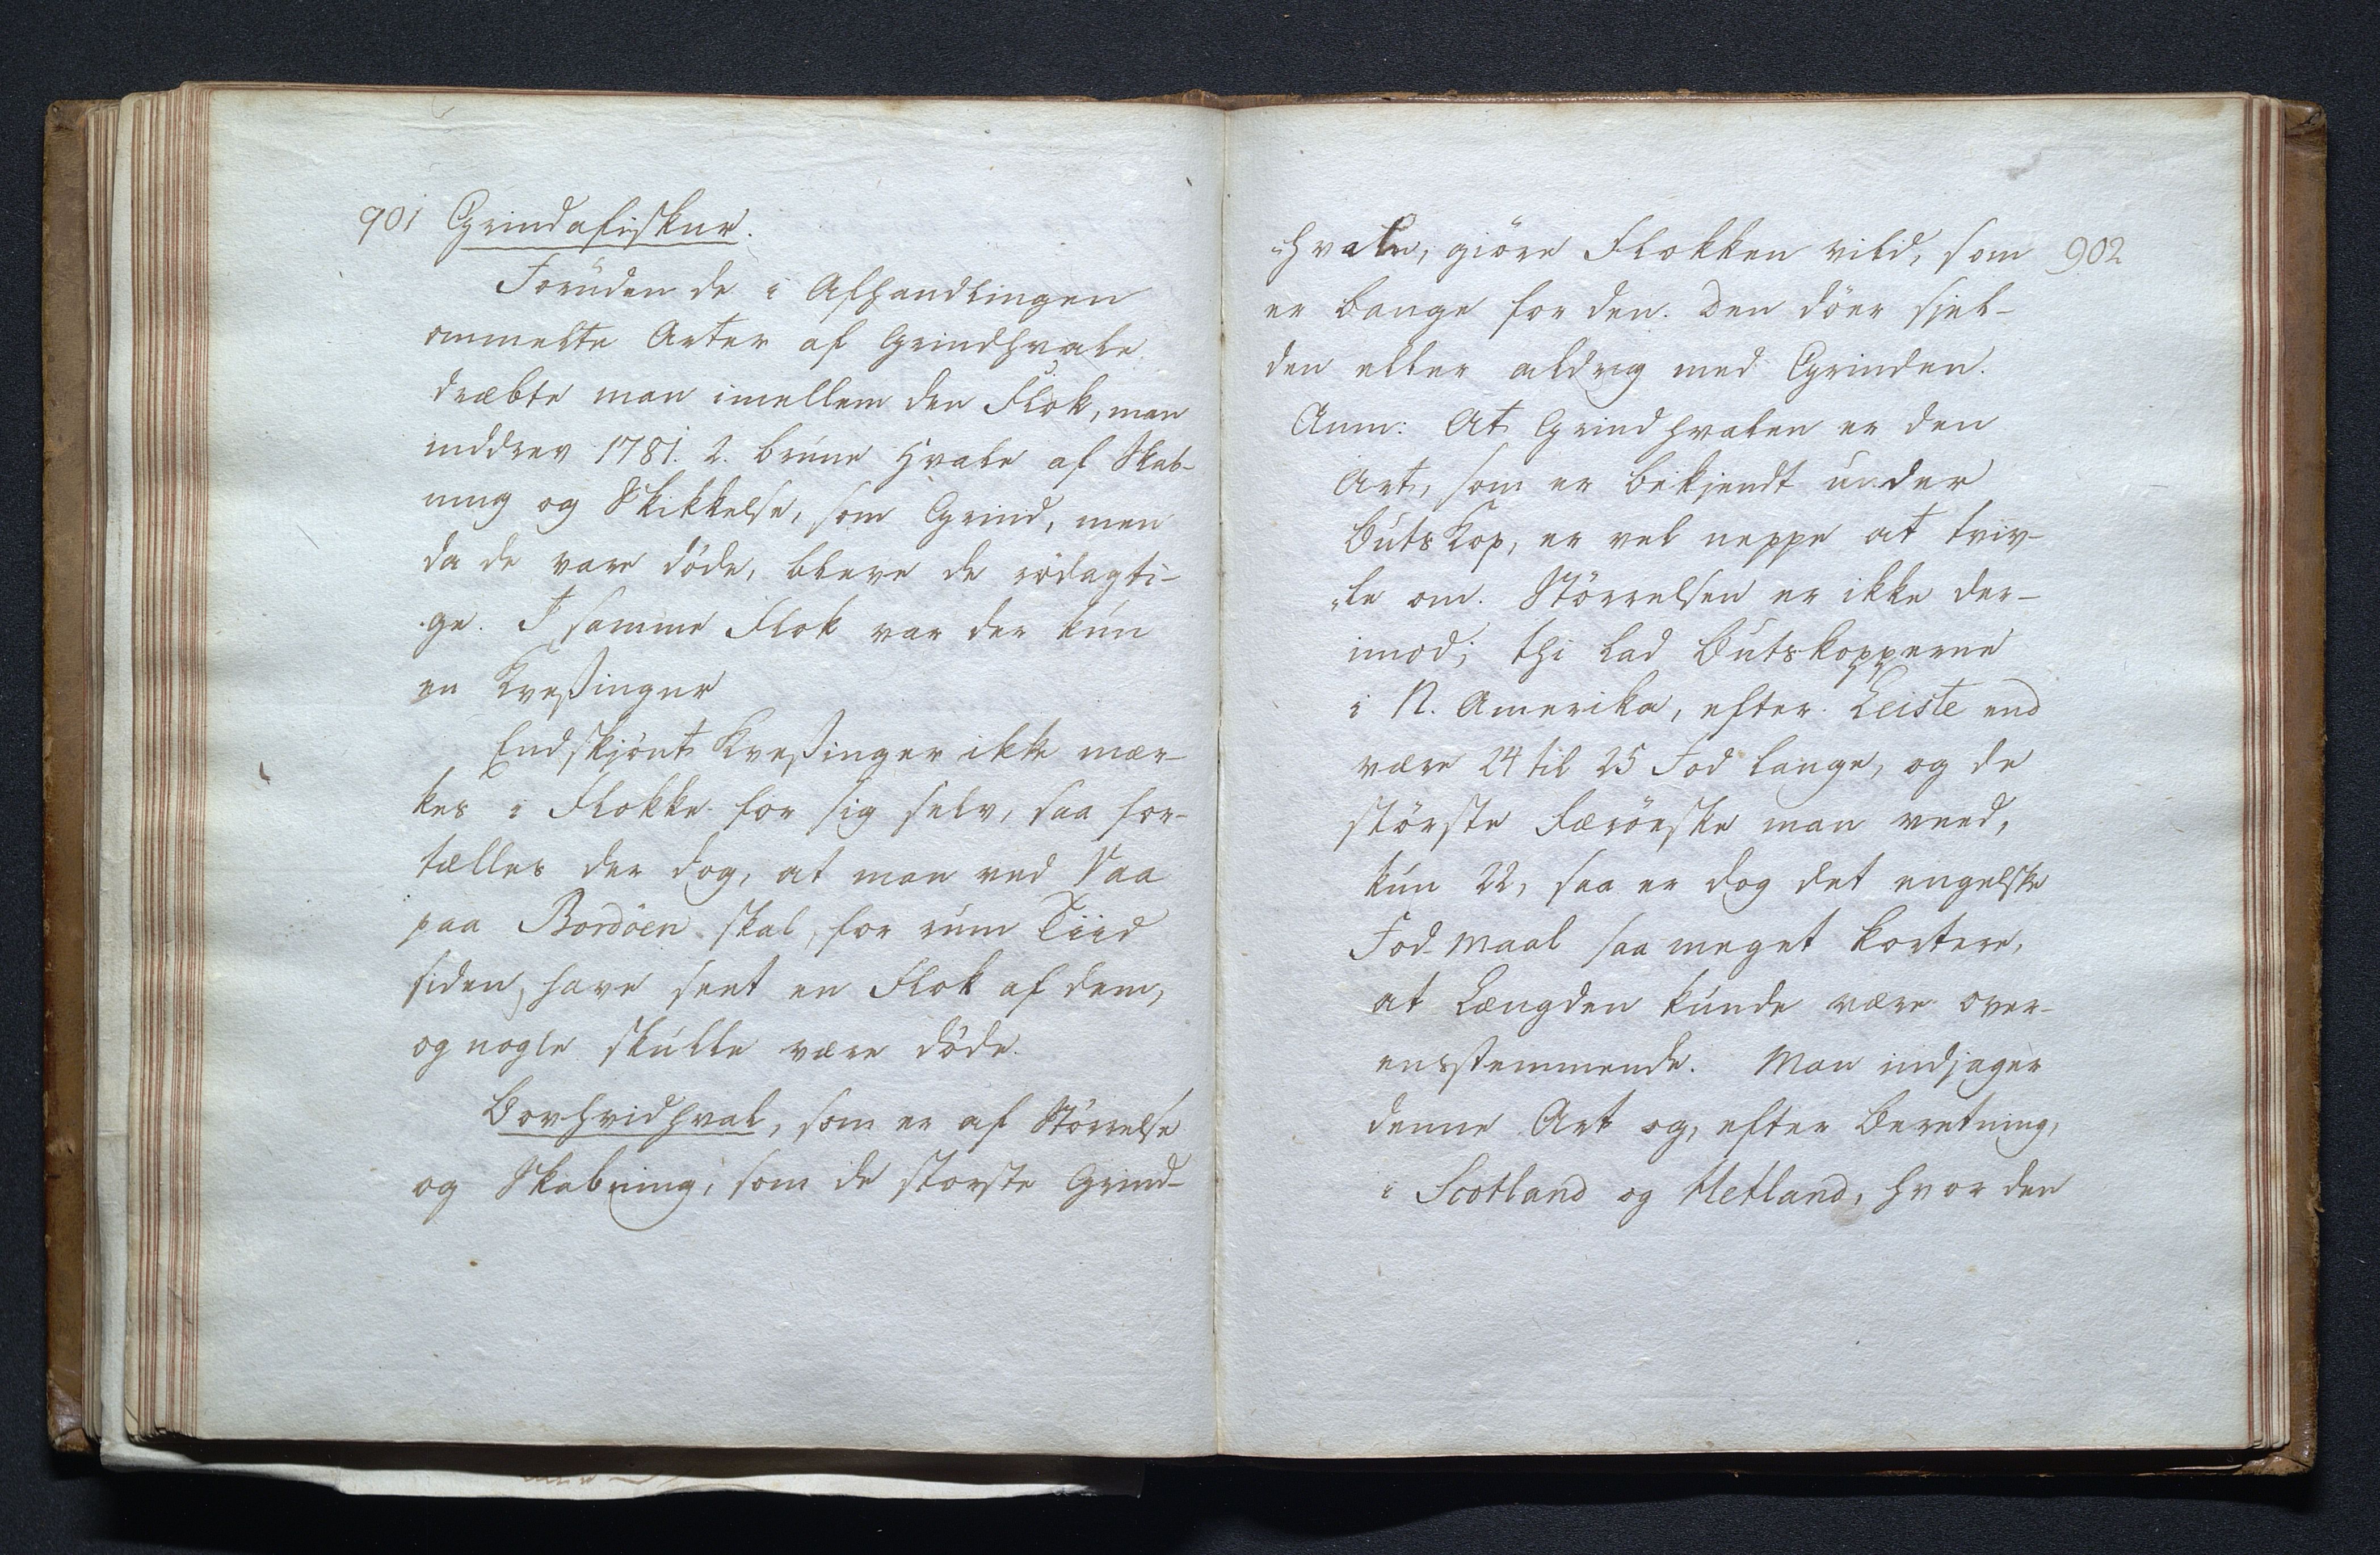 901 Grindafiskur.
Foruden de i Afhandlingen
ommelte Arter af Grindhvale
dræbte man imellem den Flok, man
inddrev 1781. 2. brune Hvale af Skab-
ning og Skikkelse, som Grind, men
da de vare döde, bleve de rödagti-
ge. I samme Flok var der kun
en Kveßingur
Endskjönt Kveßinger ikke mær-
kes i Flokke for sig selv, saa for-
tælles der dog, at man ved Vaa
paa Bordöen skal, for rum Tiid
siden, have seet en Flok af dem,
og nogle skulle være döde.
Bovhvidhval, som er af Störrelse
og Skabning, som de storste Grind-
902
hvale, giöre Flokken vild, som
er bange for den. Den döer sjel-
den eller aldrig med Grinden.
Anm: At Grindhvalen er den
Art, som er bekjendt under
Butskop, er vel neppe at tviv-
le om. Störrelsen er ikke der-
imod; thi lad Butskopperne
i N. Amerika, efter Leiste end
være 24 til 25 Fod lange, og de
störste færöeske man veed,
kun 22, saa er dog det engelske
Fod-Maal saa meget kortere,
at Længden kunde være over-
ensstemmende. Man indjager
denne Art og, efter Beretning,
i Scotland og Hetland, hvor den